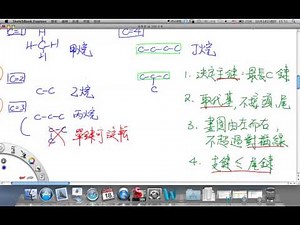 C=1
H-C-H
H
甲烷
C=4
C-C-C-C
丁烷
C=2
C-C
乙烷
C-C-C
C
C=3
C-C-C
丙烷
單鍵可旋轉
1. 決定主鏈:最長C鏈
2. 取代基,不接頭、尾
3. 畫圖由左而右,
不超過對稱線
4. 支鏈≤尾鏈